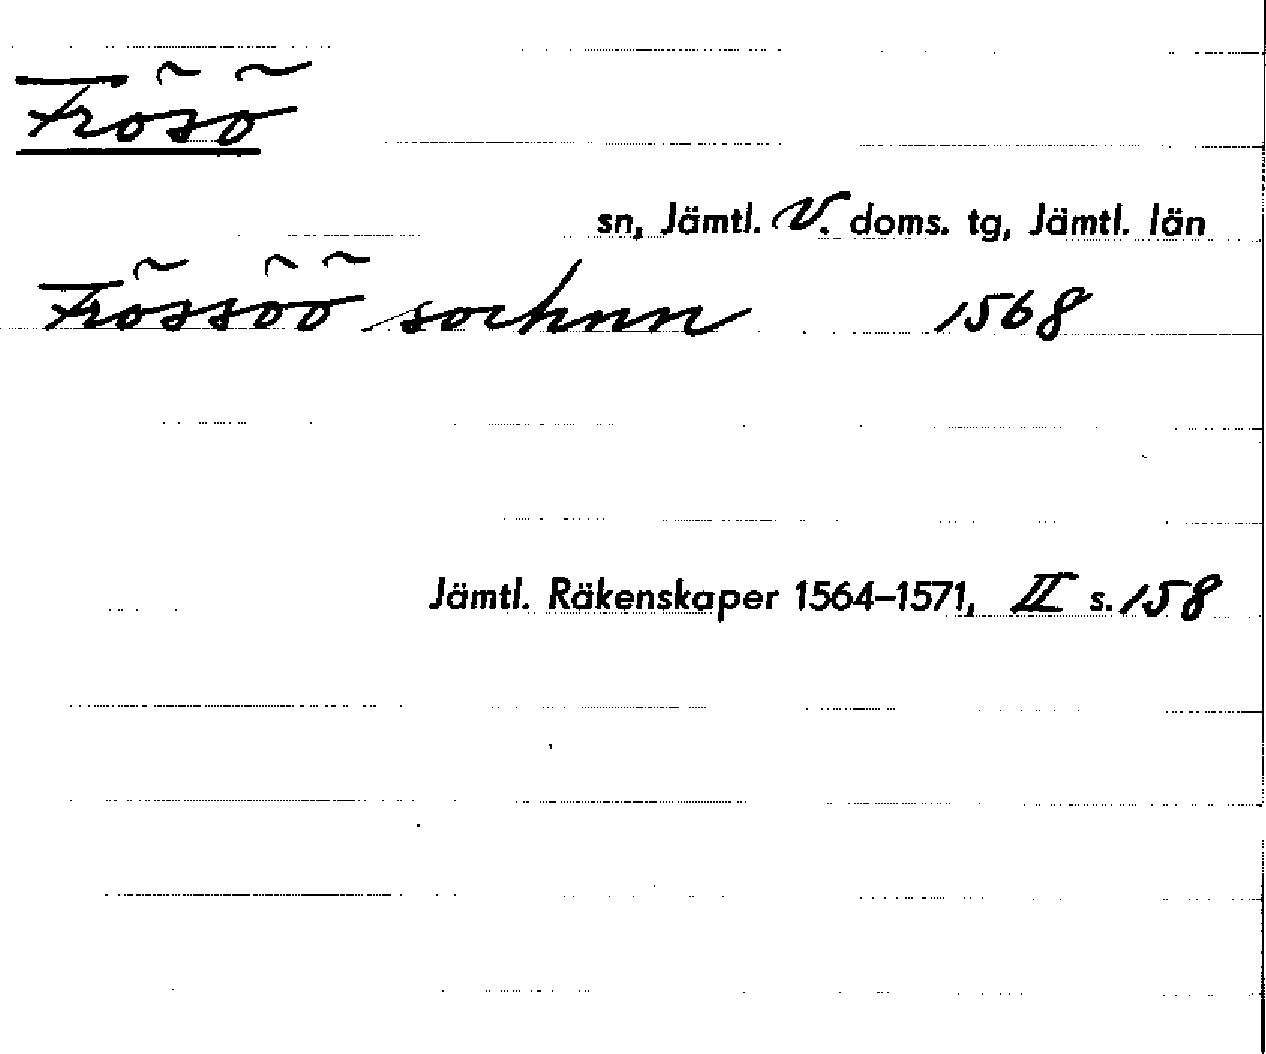 Frösö
sn, Jämtl. V. doms. tg, Jämtl. län
Frössöö sochnn 1568
Jämtl. Räkenskaper 1564–1571, II s. 158